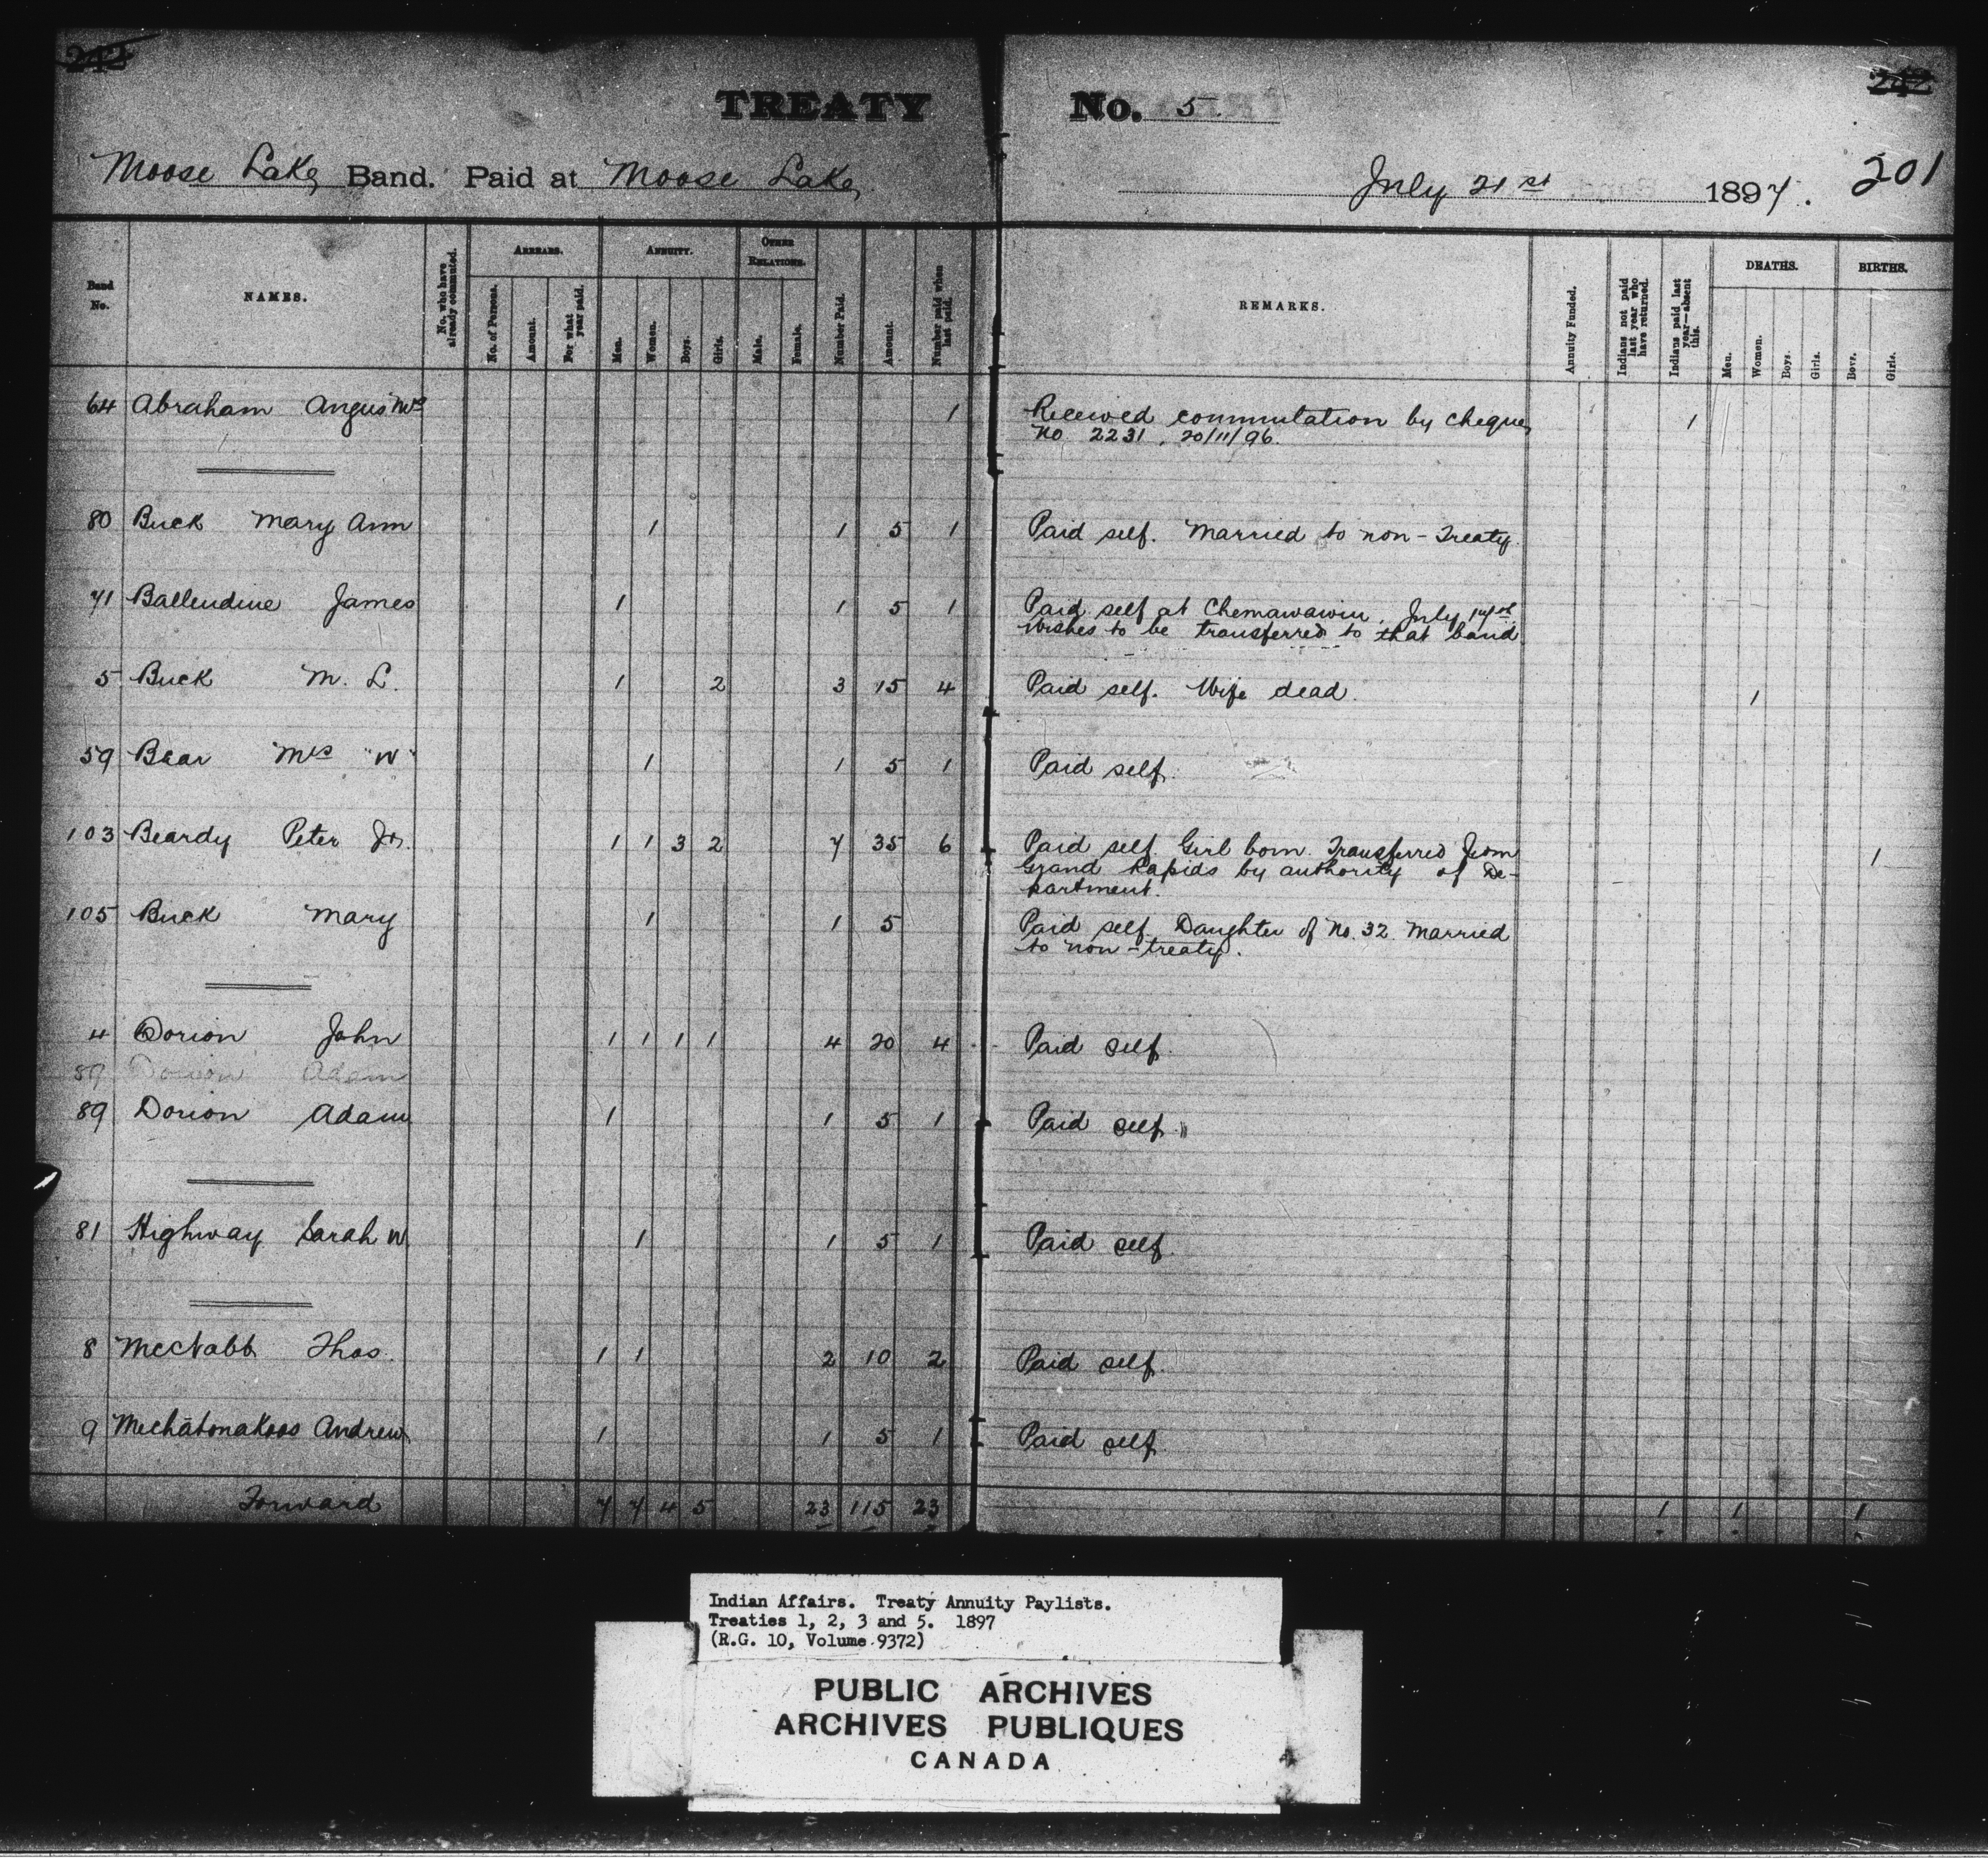 242
242
TREATY No. 5
Moose Lake Band. Paid at Moose Lake July 21st 1897. 201
Band No. NAMES. No. who have already commuted. ARREARS. No. of Persons. Amount. For what year paid. ANNUITY. Men. Women. Boys. Girls. OTHER RELATIONS. Male. Female. Number Paid. Amount. Number paid when last paid. REMARKS. Annuity Funded. Indians not paid last year who have returned. Indians paid last year—absent this. DEATHS. Men. Women. Boys. Girls. BIRTHS. Boys. Girls.
64 Abraham Angus Mrs 1 Received commutation by cheque 1
No 2231, 20/11/96.
80 Buck Mary Ann 1 1 5 1 Paid self. Married to non-Treaty.
71 Ballendine James 1 1 5 1 Paid self at Chemawawin, July 17th
Wishes to be transferred to that band
5 Buck M. L. 1 2 3 15 4 Paid self. Wife dead. 1
59 Bear Mrs "W" 1 1 5 1 Paid self.
103 Beardy Peter Jr. 1 1 3 2 7 35 6 Paid self. Girl born. Transferred from 1
Grand Rapids by authority of De-
partment.
105 Buck Mary 1 1 5 Paid self. Daughter of No. 32. Married
to non-treaty.
4 Dorion John 1 1 1 1 4 20 4 Paid self.
89 Dorion Adam
89 Dorion Adam 1 1 5 1 Paid self.
81 Highway Sarah W 1 1 5 1 Paid self.
8 McNabb Thos. 1 1 2 10 2 Paid self.
9 Mechatonakoos Andrew 1 1 5 1 Paid self.
Forward 7 7 4 5 23 115 23 1 1 1
Indian Affairs. Treaty Annuity Paylists.
Treaties 1, 2, 3 and 5. 1897
(R.G. 10, Volume 9372)
PUBLIC ARCHIVES
ARCHIVES PUBLIQUES
CANADA